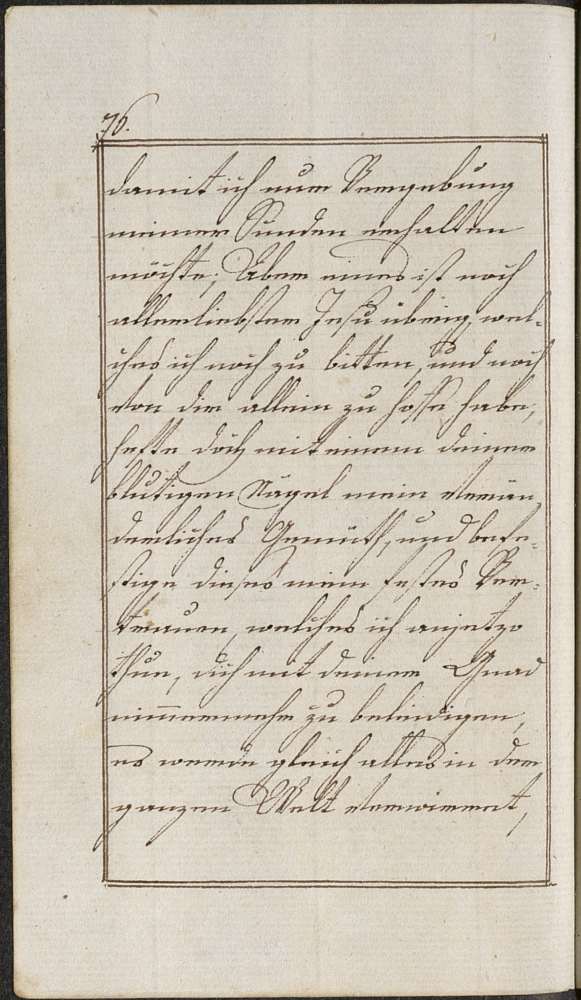 76.
damit ich nur Vergebung
meiner Sunden erhalten
möchte; Aber eines ist noch
allerliebster Jesu übrig, wel-
ches ich noch zu bitten, und noch
von dir allein zu hoffe habe,
hefte doch mit einem deiner
blutigen Nägel mein verän
derliches Gemüth, und befe-
stige dieses mein festes Ver-
trauen, welches ich anjetzo
thue, dich mit deiner Gnad
nimmermehr zu beleidigen,
es werde gleich alles in der
ganzen Welt verwirret,